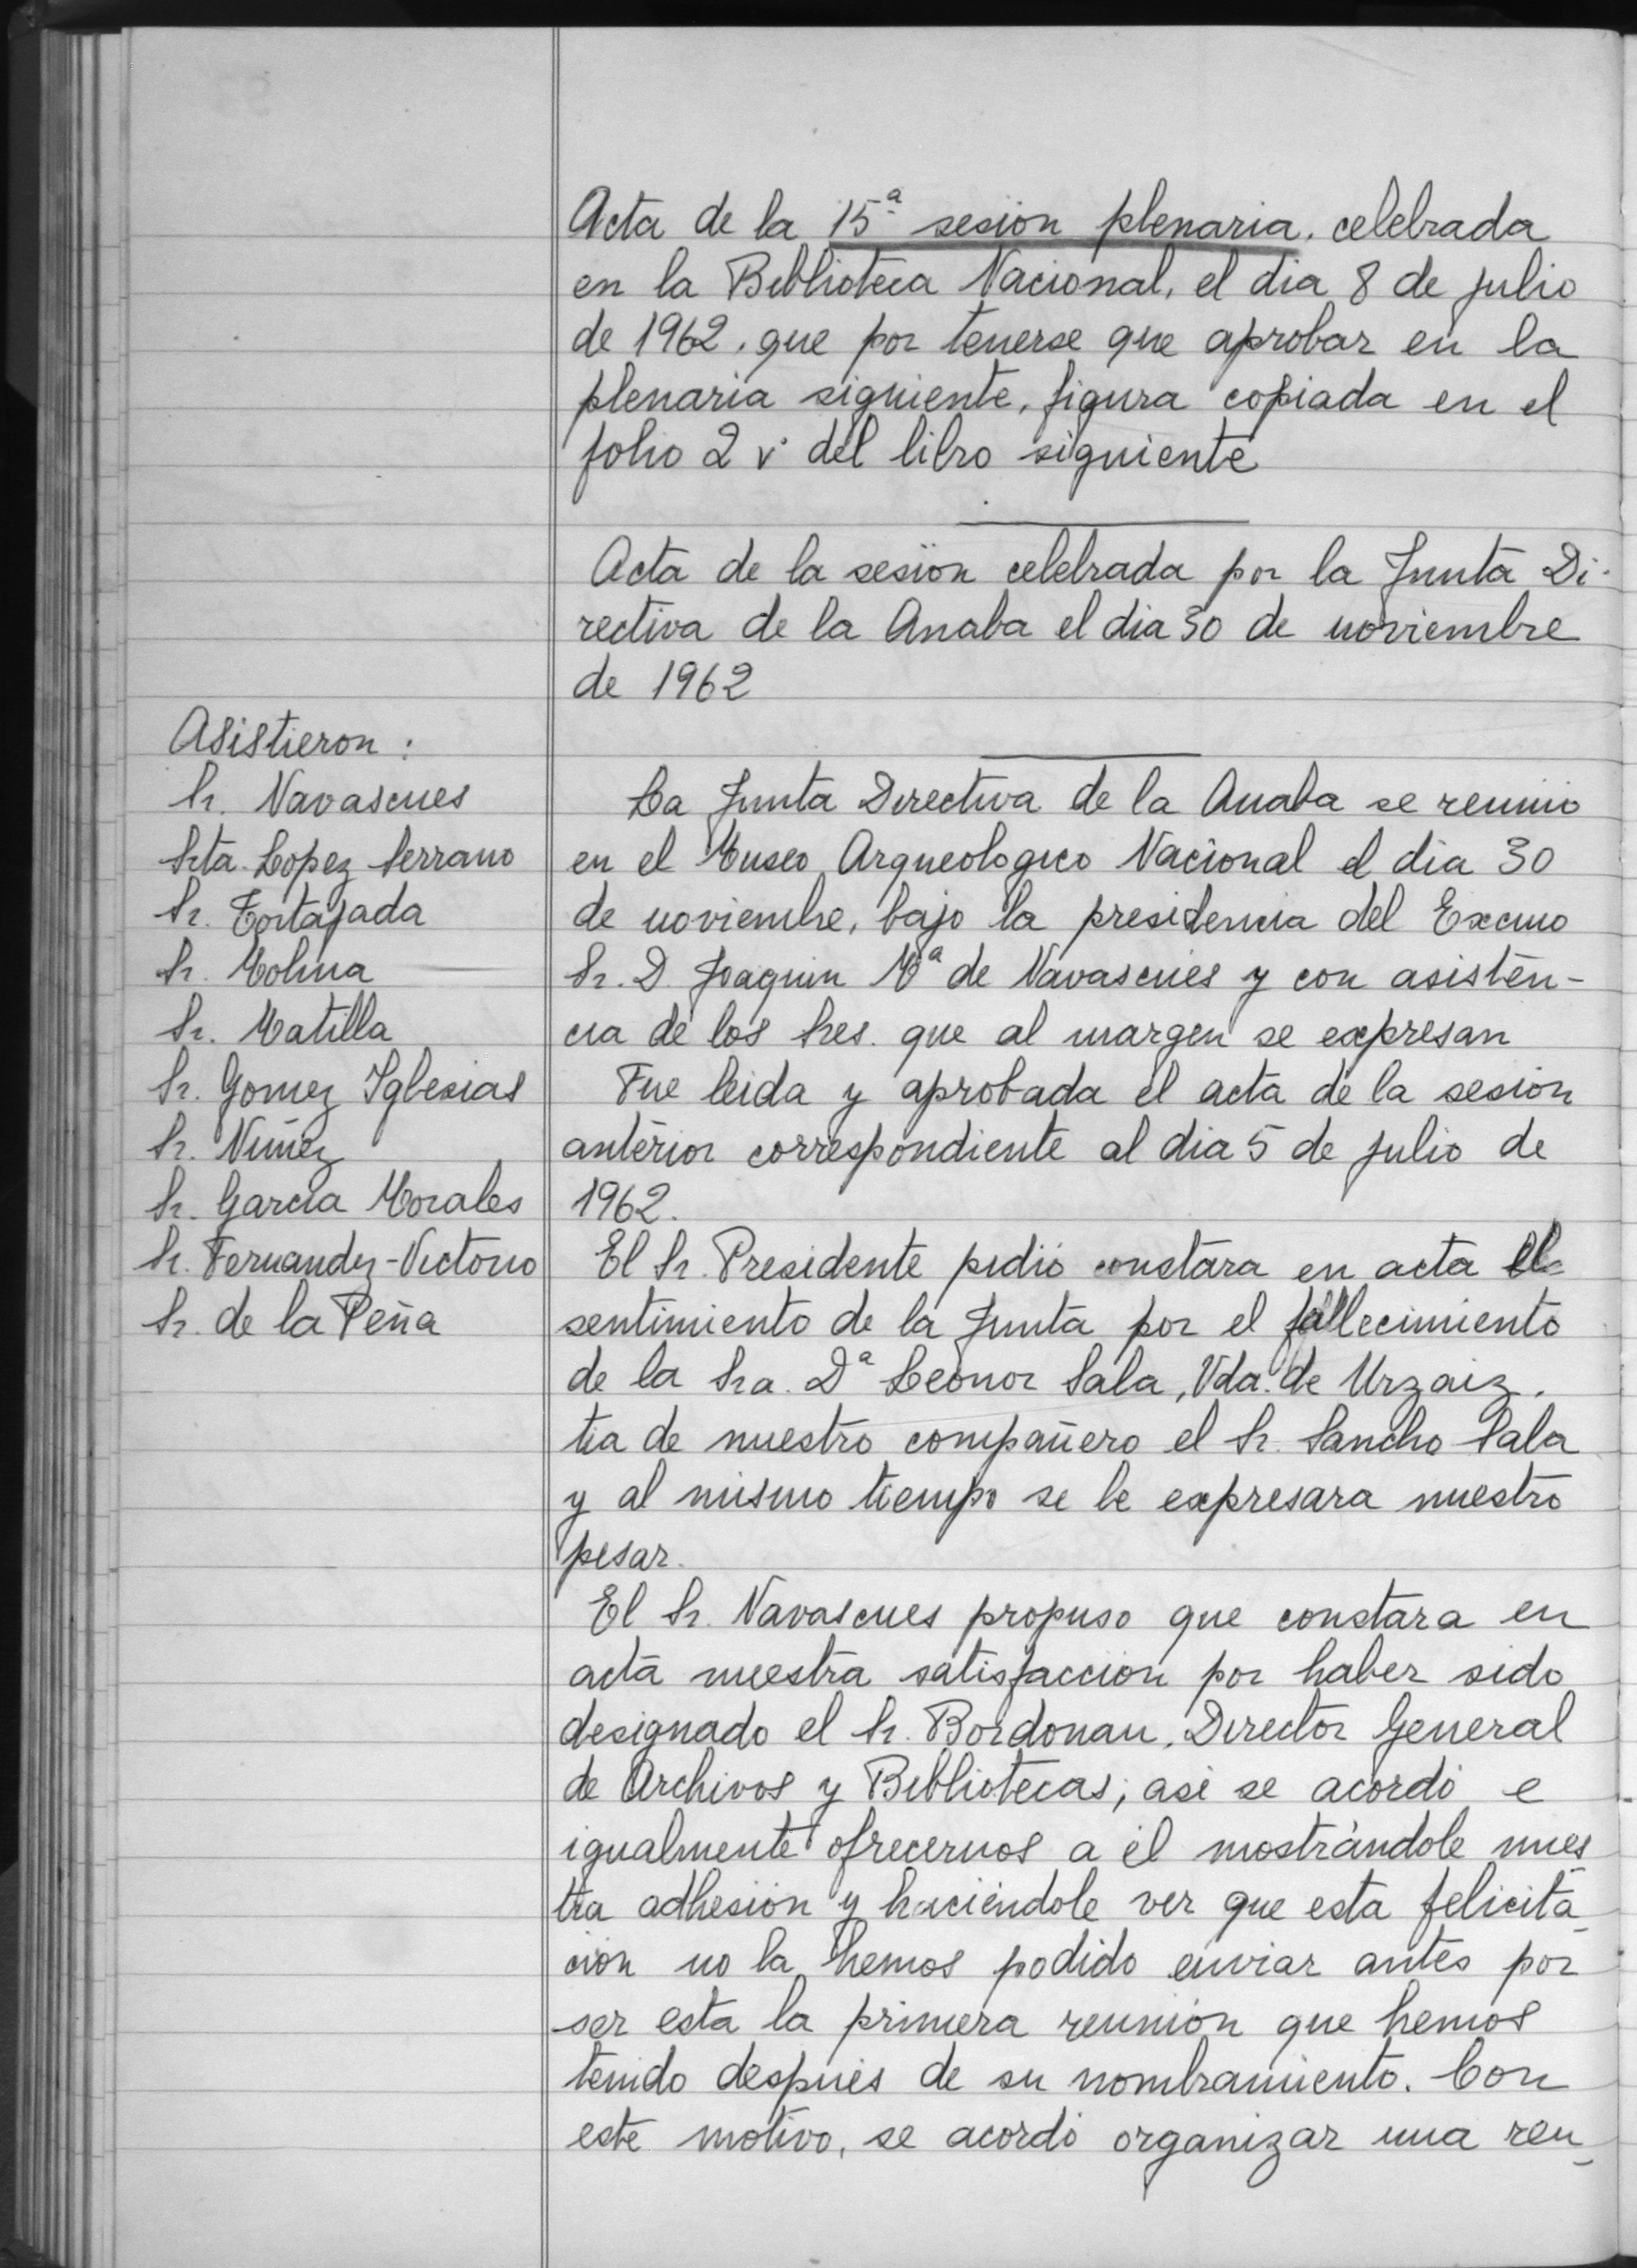 Acta de la 15ª sesion plenaria, celebrada
en la Biblioteca Nacional, el dia 8 de julio
de 1962, que por tenerse que aprobar en la
plenaria siguiente, figura copiada en el
folio 2 vº del libro siguiente
Acta de la sesión celebrada por la Junta Di-
rectiva de la Anaba el dia 30 de noviembre
de 1962
Asistieron:
Sr. Navascues
Srta. Lopez Serrano
Sr. Tortajada
Sr. Molina
Sr. Matilla
Sr. Gomez Iglesias
Sr. Nuñez
Sr. García Morales
Sr. Fernandez-Victorio
Sr. de la Peña
La Junta Directiva de la Anaba se reunió
en el Museo Arqueologico Nacional el dia 30
de noviembre, bajo la presidencia del Excmo
Sr. D. Joaquin Mª de Navascués y con asisten-
cia de los Sres. que al margen se expresan
Fue leida y aprobada el acta de la sesión
anterior correspondiente al dia 5 de julio de
1962.
El Sr. Presidente pidió constara en acta el
sentimiento de la Junta por el fallecimiento
de la Sra. Dª Leonor Sala, Vda. de Urzaiz,
tia de nuestro compañero el Sr. Sancho Sala
y al mismo tiempo se le expresara nuestro
pesar.
El Sr. Navascues propuso que constara en
acta nuestra satisfacción por haber sido
designado el Sr. Bordonau, Director General
de Archivos y Bibliotecas; asi se acordó e
igualmente ofrecernos a él mostrándole nues
tra adhesión y haciéndole ver que esta felicita-
ción no la hemos podido enviar antes por
ser esta la primera reunión que hemos
tenido después de su nombramiento. Con
este motivo, se acordó organizar una reu-